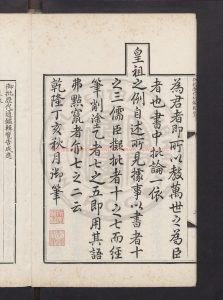 為君者即所以教萬世之為臣
者也書中批論一依
皇祖
之例自述所見據事以書者十
之三儒臣擬批者十之七而經
筆削塗乙者七之五即用其語
弗點竄者亦七之二云
乾隆丁亥秋月御筆
御批歷代通鑑輯覽